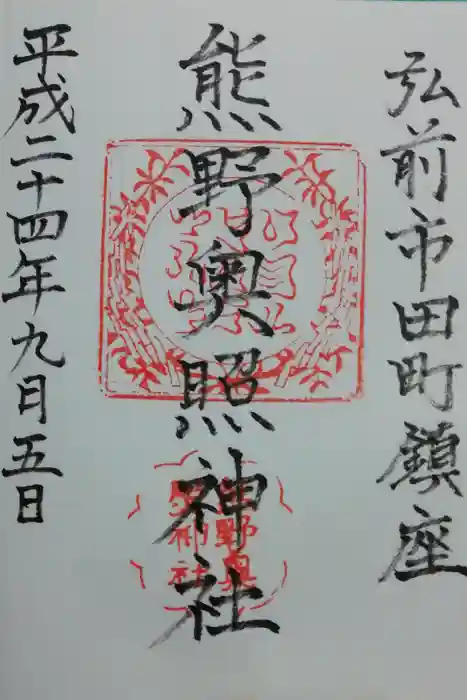 弘前市田町鎮座
熊野奥照神社
平成二十四年九月五日